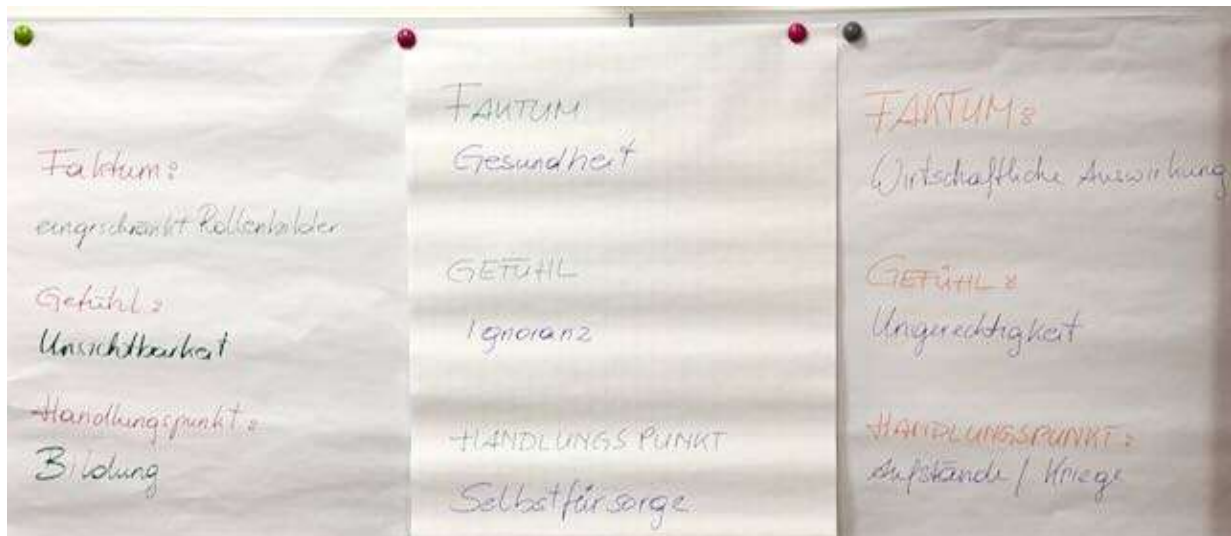 Faktum:
eingeschränkt Rollenbilder
Gefühl:
Unsichtbarkeit
Handlungspunkt:
Bildung
FAKTUM
Gesundheit
GEFÜHL
Ignoranz
HANDLUNGSPUNKT
Selbstfürsorge
FAKTUM:
Wirtschaftliche Auswirkung
GEFÜHL:
Ungerechtigkeit
HANDLUNGSPUNKT:
Aufstände / Kriege